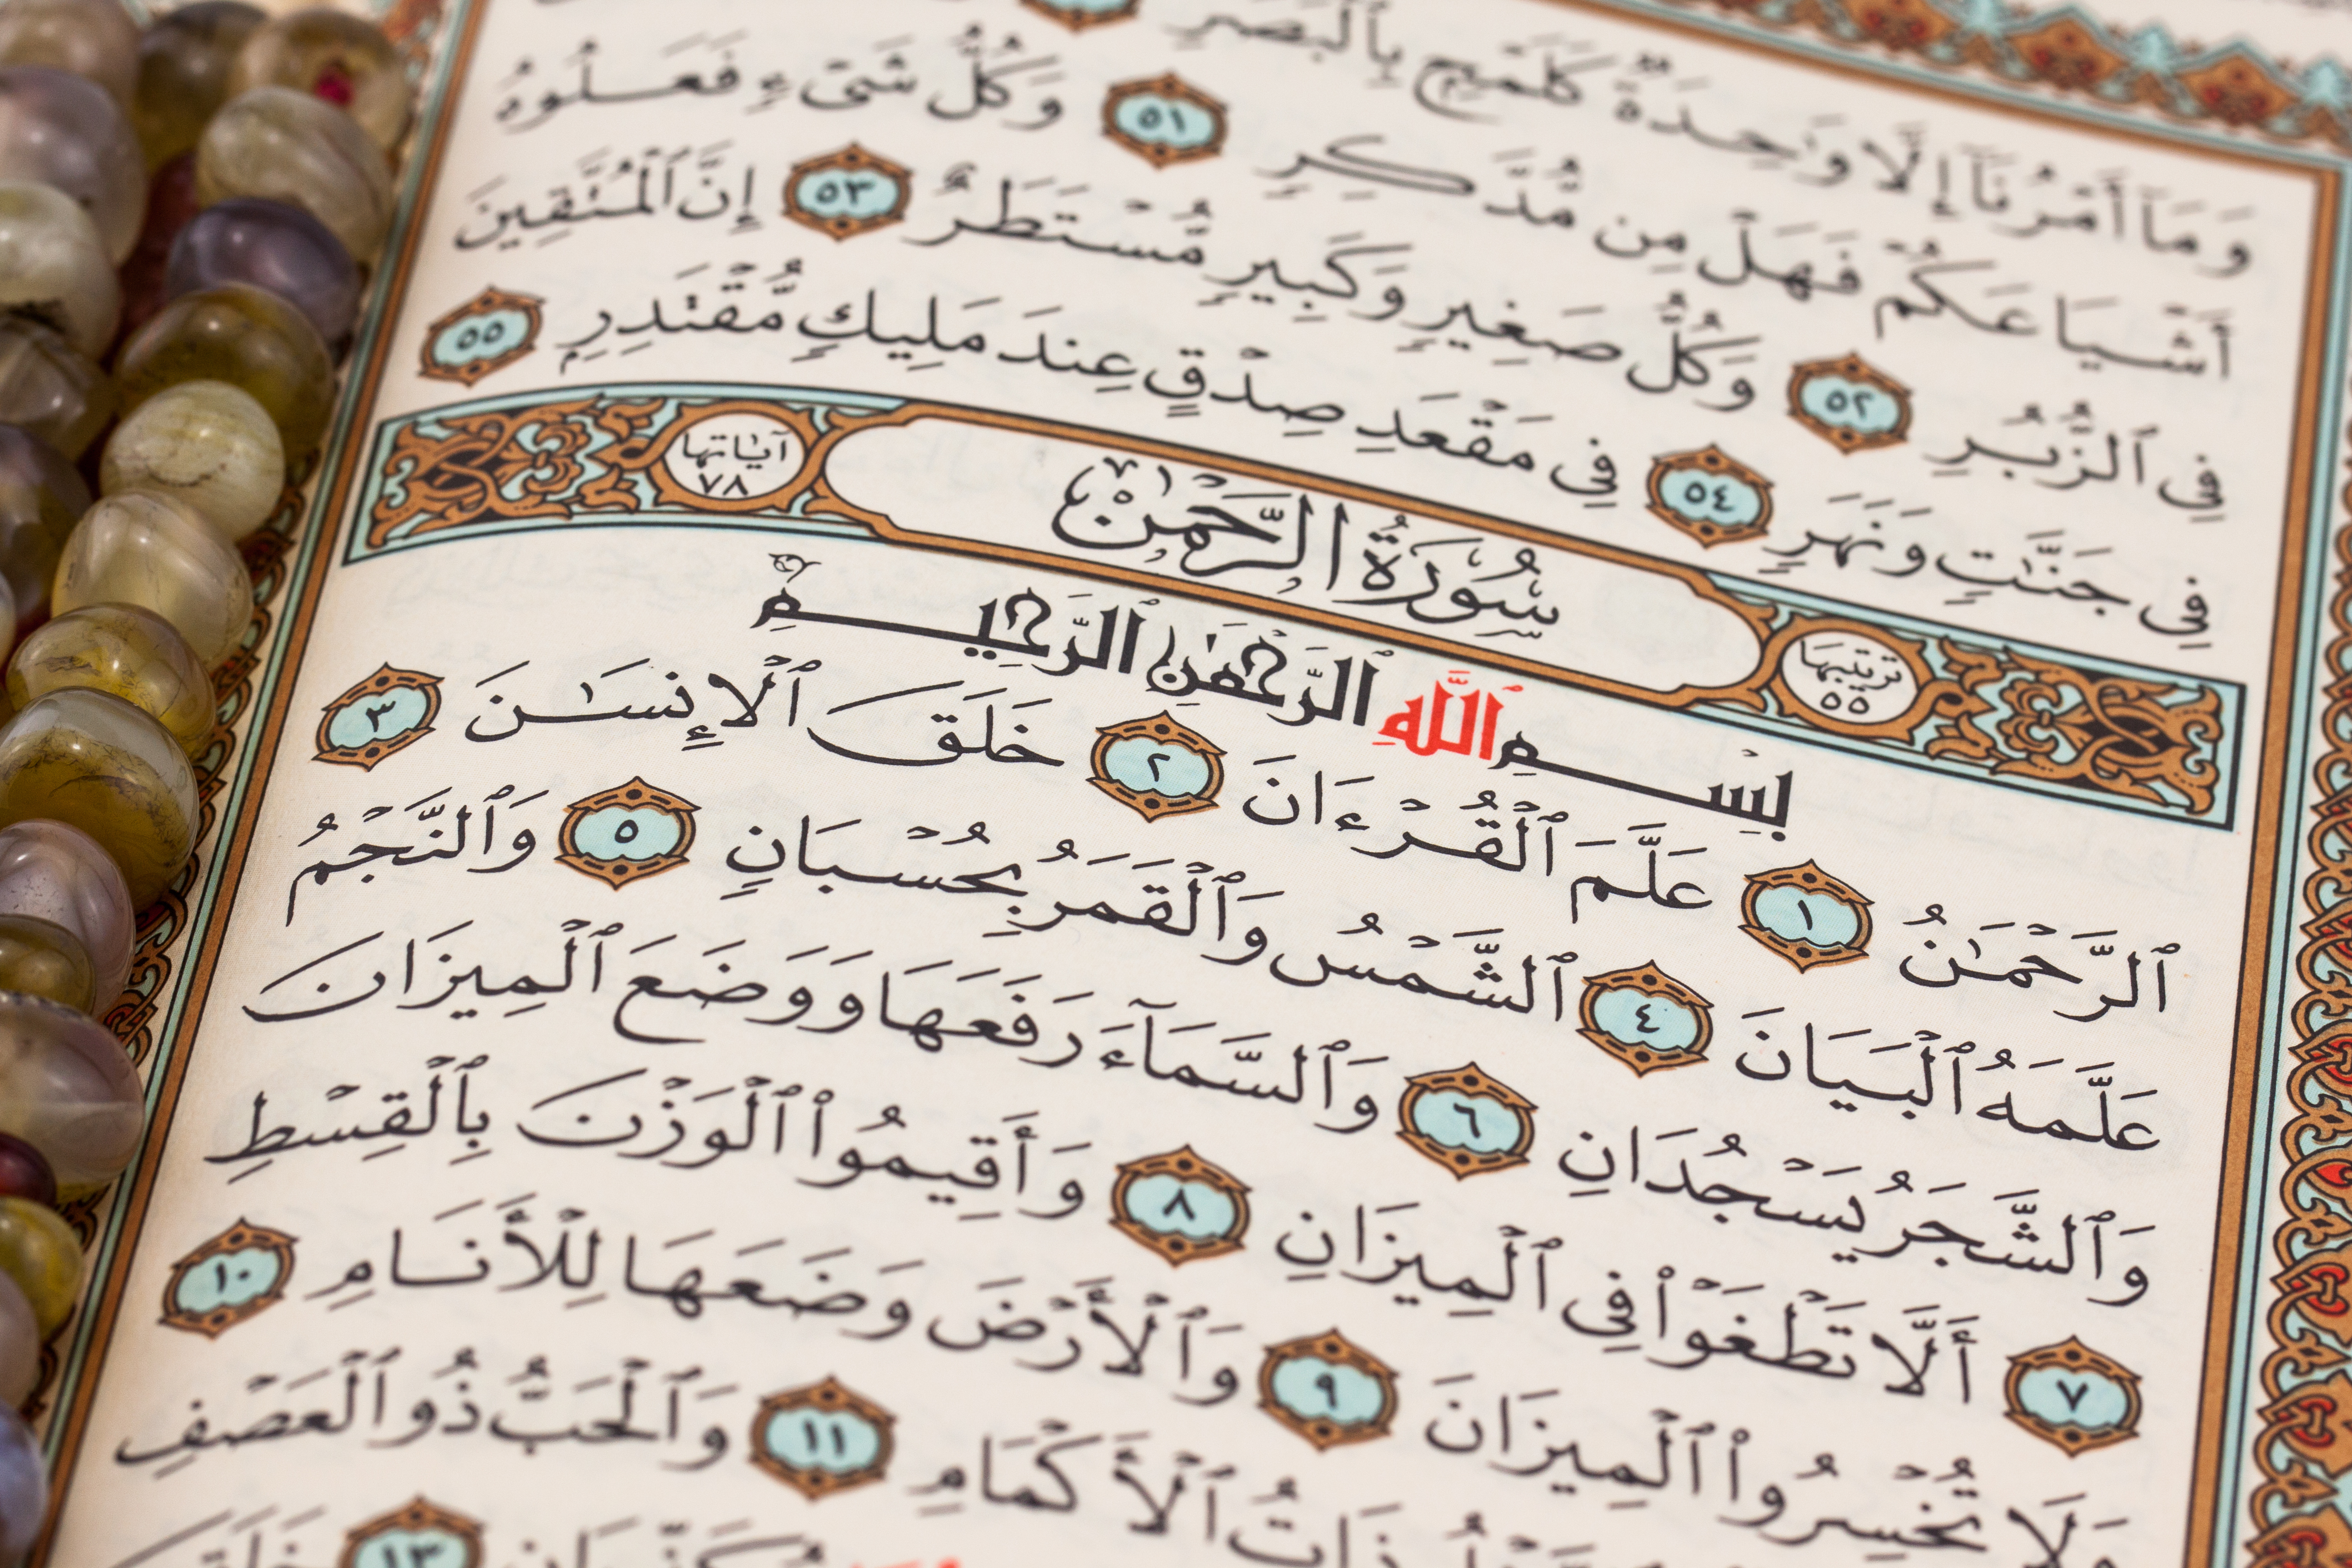 وَمَآ أَمْرُنَآ إِلَّا وَٰحِدَةٌ كَلَمْحٍۭ بِٱلْبَصَرِ
أَشْيَاعَكُمْ فَهَلْ مِن مُّدَّكِرٍ ٥١ وَكُلُّ شَىْءٍ فَعَلُوهُ
فِى ٱلزُّبُرِ ٥٢ وَكُلُّ صَغِيرٍ وَكَبِيرٍ مُّسْتَطَرٌ ٥٣ إِنَّ ٱلْمُتَّقِينَ
فِى جَنَّٰتٍ وَنَهَرٍ ٥٤ فِى مَقْعَدِ صِدْقٍ عِندَ مَلِيكٍ مُّقْتَدِرٍۭ ٥٥
ترتيبها ٥٥ سُورَةُ الرَّحْمٰن آياتها ٧٨
بِسْمِ ٱللَّهِ ٱلرَّحْمَٰنِ ٱلرَّحِيمِ
ٱلرَّحْمَٰنُ ١ عَلَّمَ ٱلْقُرْءَانَ ٢ خَلَقَ ٱلْإِنسَٰنَ ٣
عَلَّمَهُ ٱلْبَيَانَ ٤ ٱلشَّمْسُ وَٱلْقَمَرُ بِحُسْبَانٍ ٥ وَٱلنَّجْمُ
وَٱلشَّجَرُ يَسْجُدَانِ ٦ وَٱلسَّمَآءَ رَفَعَهَا وَوَضَعَ ٱلْمِيزَانَ
٧ أَلَّا تَطْغَوْا۟ فِى ٱلْمِيزَانِ ٨ وَأَقِيمُوا۟ ٱلْوَزْنَ بِٱلْقِسْطِ
وَلَا تُخْسِرُوا۟ ٱلْمِيزَانَ ٩ وَٱلْأَرْضَ وَضَعَهَا لِلْأَنَامِ ١٠
ذَاتُ ٱلْأَكْمَامِ ١١ وَٱلْحَبُّ ذُو ٱلْعَصْفِ
١٣